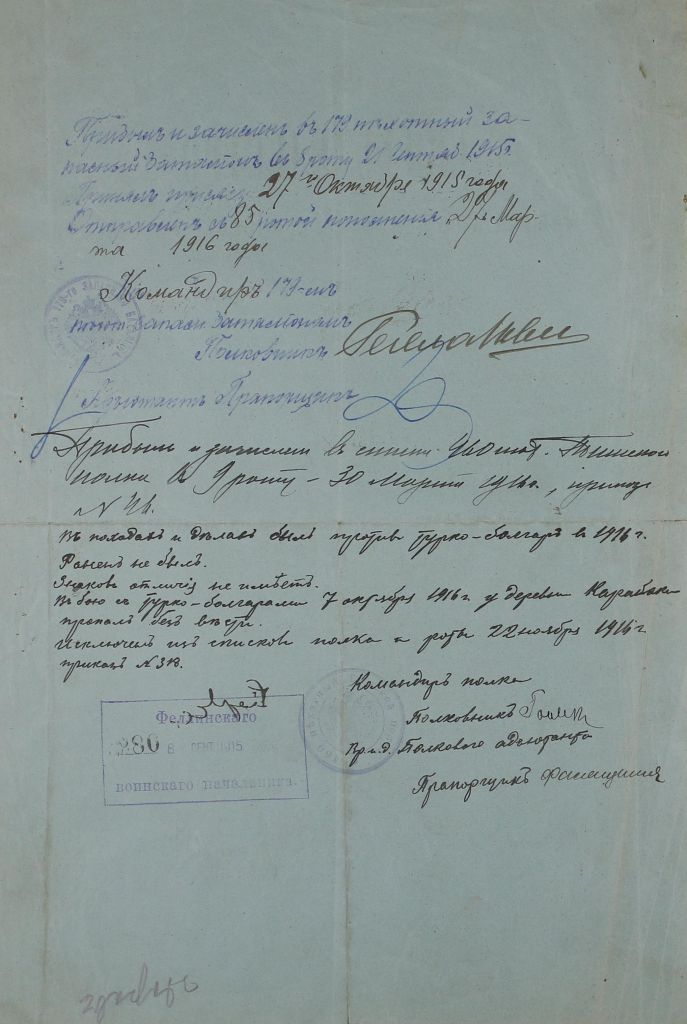 Прибылъ и зачисленъ въ 179 пѣхотный за-
пасный баталіонъ въ 5 роту 21 Сентяб. 1915г.
Принялъ присягу 27го Октября 1915 года
Отправленъ съ 85 ротой пополненія 2го Мар-
та 1916 года
Командиръ 179-мъ
пѣхот. Запасн. баталіономъ
Полковникъ
Адъютантъ Прапорщикъ
Прибылъ и зачисленъ въ списки полка
въ 9 роту - 30 Марта 1916г., приказ
№
Въ походахъ и дѣлахъ былъ противъ турко-болгаръ въ 1916 г.
Раненъ не былъ.
Знаковъ отличія не имѣетъ.
Въ бою съ турко-болгарами 7 октября 1916 г. у деревни
пропалъ безъ вѣсти.
Исключенъ изъ списковъ полка и роты 22 ноября 1916 г
приказъ №
Командиръ полка
Полковникъ
Вр.и.д. Полкового адъютанта
Прапорщикъ
Феллинскаго
280 8 СЕНТ 1915
воинскаго начальника.